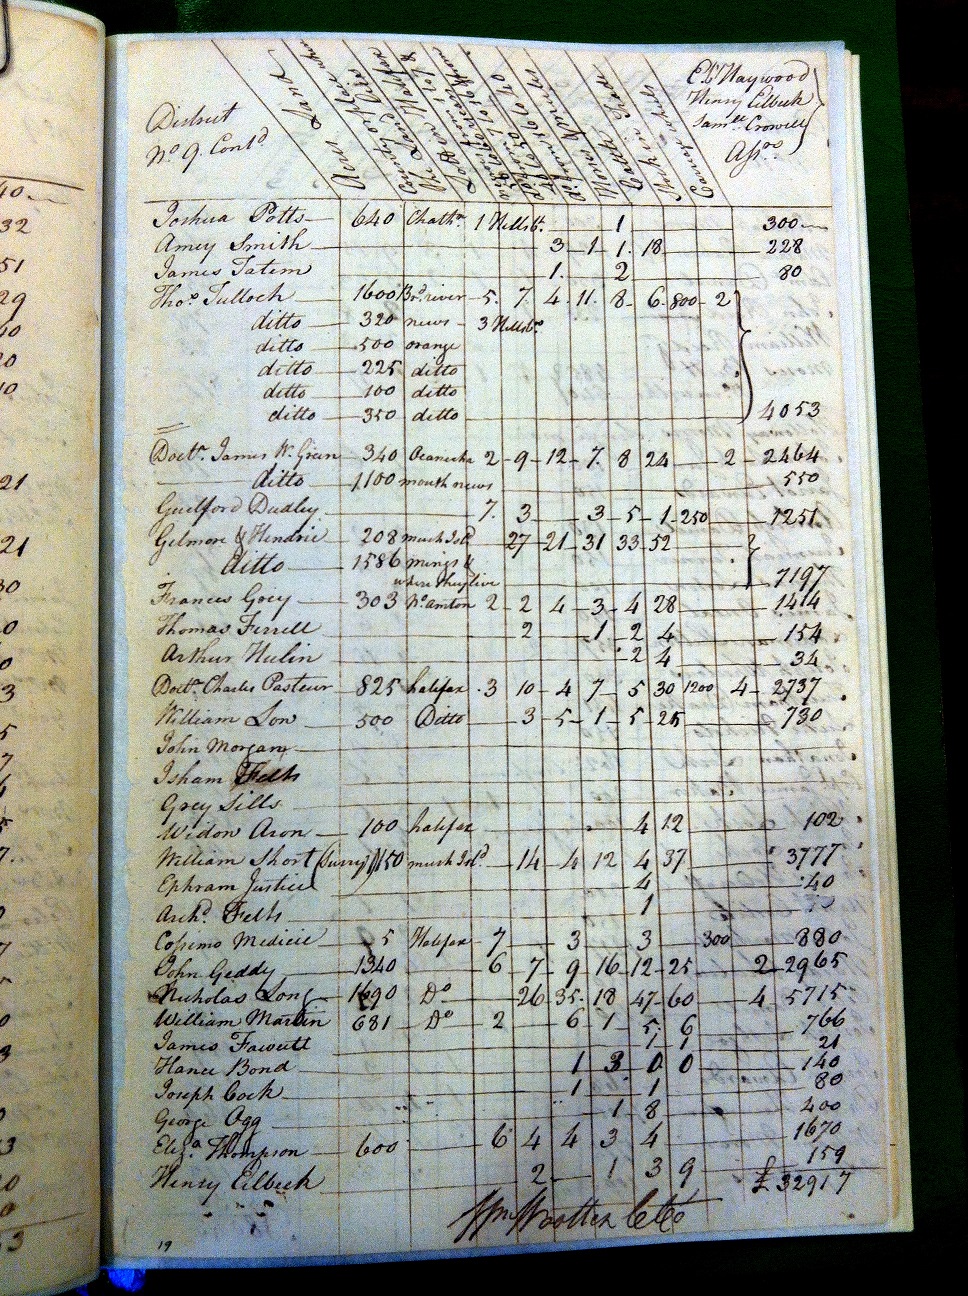 District
No 9. Contd
Acres Land
Horses
Cattle
Eb Haywood
Henry Eelbeck
Samll Crowell
Assrs
Joshua Potts 640 Chathm 1 Hillsb. 1 300
Amey Smith 3 1 1. 18 228
James Tatem 1. 2 80
Thos Tulloch 1600 Brd river 5. 7. 4. 11. 8 6 800 2
ditto 320 news 3 Hillsbo
ditto 500 orange
ditto 225 ditto
ditto 100 ditto
ditto 350 ditto 4053
Doctr James W. Green 340 Oconecha 2 9 12 7. 8 24 2 2464
ditto 1100 mouth news 550
Guilford Dudley 7. 3 3 5 1 250 1251
Gilmore & Hendrie 208 mush Isld 27 21 31 33 52
ditto 1586 mings &
where they live 7197
Frances Goey 303 No amton 2 2 4 3 4 28 1414
Thomas Ferrell 2 1 2 4 154
Arthur Hulin 2 4 34
Doctr Charles Pasteur 825 halifax 3 10 4 7 5 30 1200 4 2737
William Lon 500 Ditto 3 5 1 5 25 730
John Morgan
Isham Felts
Grey Sills
Widow Aron 100 halifax 4 12 102
William Short (Surry) 1150 mush Isld 14 4 12 4 37 3777
Ephram Justice 4 40
Archd Felts 1
Cosimo Medicie 5 Halifax 7 3 3 300 880
John Geddy 1340 6 7 9 16 12 25 2 2965
Nicholas Long 1690 Do 26 35 18 47 60 4 5715
William Martin 681 Do 2 6 1 5 6 766
James Fawcett 1 1 21
Hance Bond 1 3 0 0 140
Joseph Cock 1 1 80
George Ogg 1 8 400
Eliza Thompson 600 6 4 4 3 4 1670
Henry Eelbeck 2 1 3 9 159
£ 32917
Wm Wootten
19